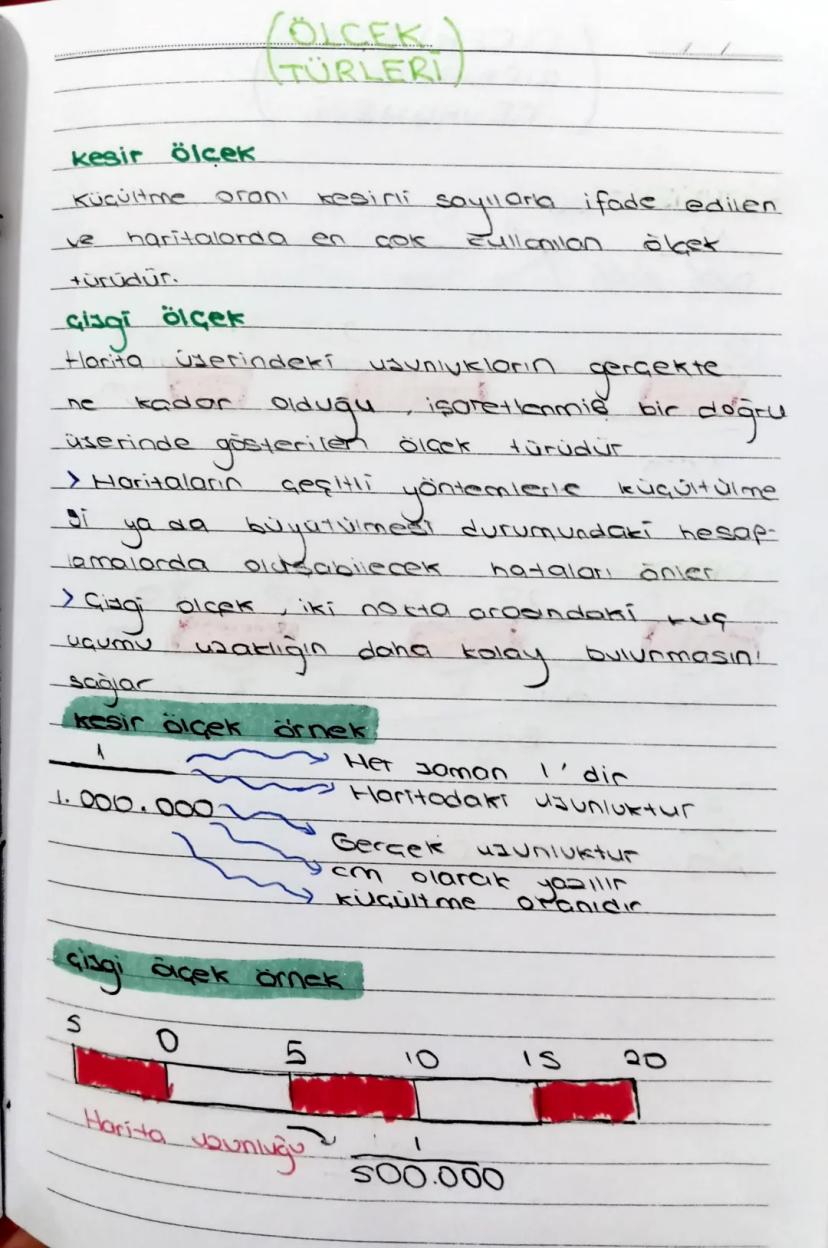 (ÖLÇEK
TÜRLERİ)
kesir ölçek
Küçültme oranı kesirli sayılarla ifade edilen
ve haritalarda en çok kullanılan ölçek
türüdür.
Çizgi ölçek
Harita üzerindeki uzunlukların gerçekte
ne kadar olduğu, işaretlenmiş bir doğru
üzerinde gösterilen ölçek türüdür
> Haritaların çeşitli yöntemlerle küçültülme
si ya da büyütülmesi durumundaki hesap-
lamalarda oluşabilecek hataları önler
> Çizgi ölçek, iki nokta arasındaki kuş
uçumu uzaklığın daha kolay bulunmasını
sağlar
kesir ölçek örnek
1 Her zaman 1'dir
Haritadaki uzunluktur
1.000.000
Gerçek uzunluktur
cm olarak yazılır
küçültme oranıdır
çizgi ölçek örnek
5 0 5 10 15 20
Harita uzunluğu 1
500.000